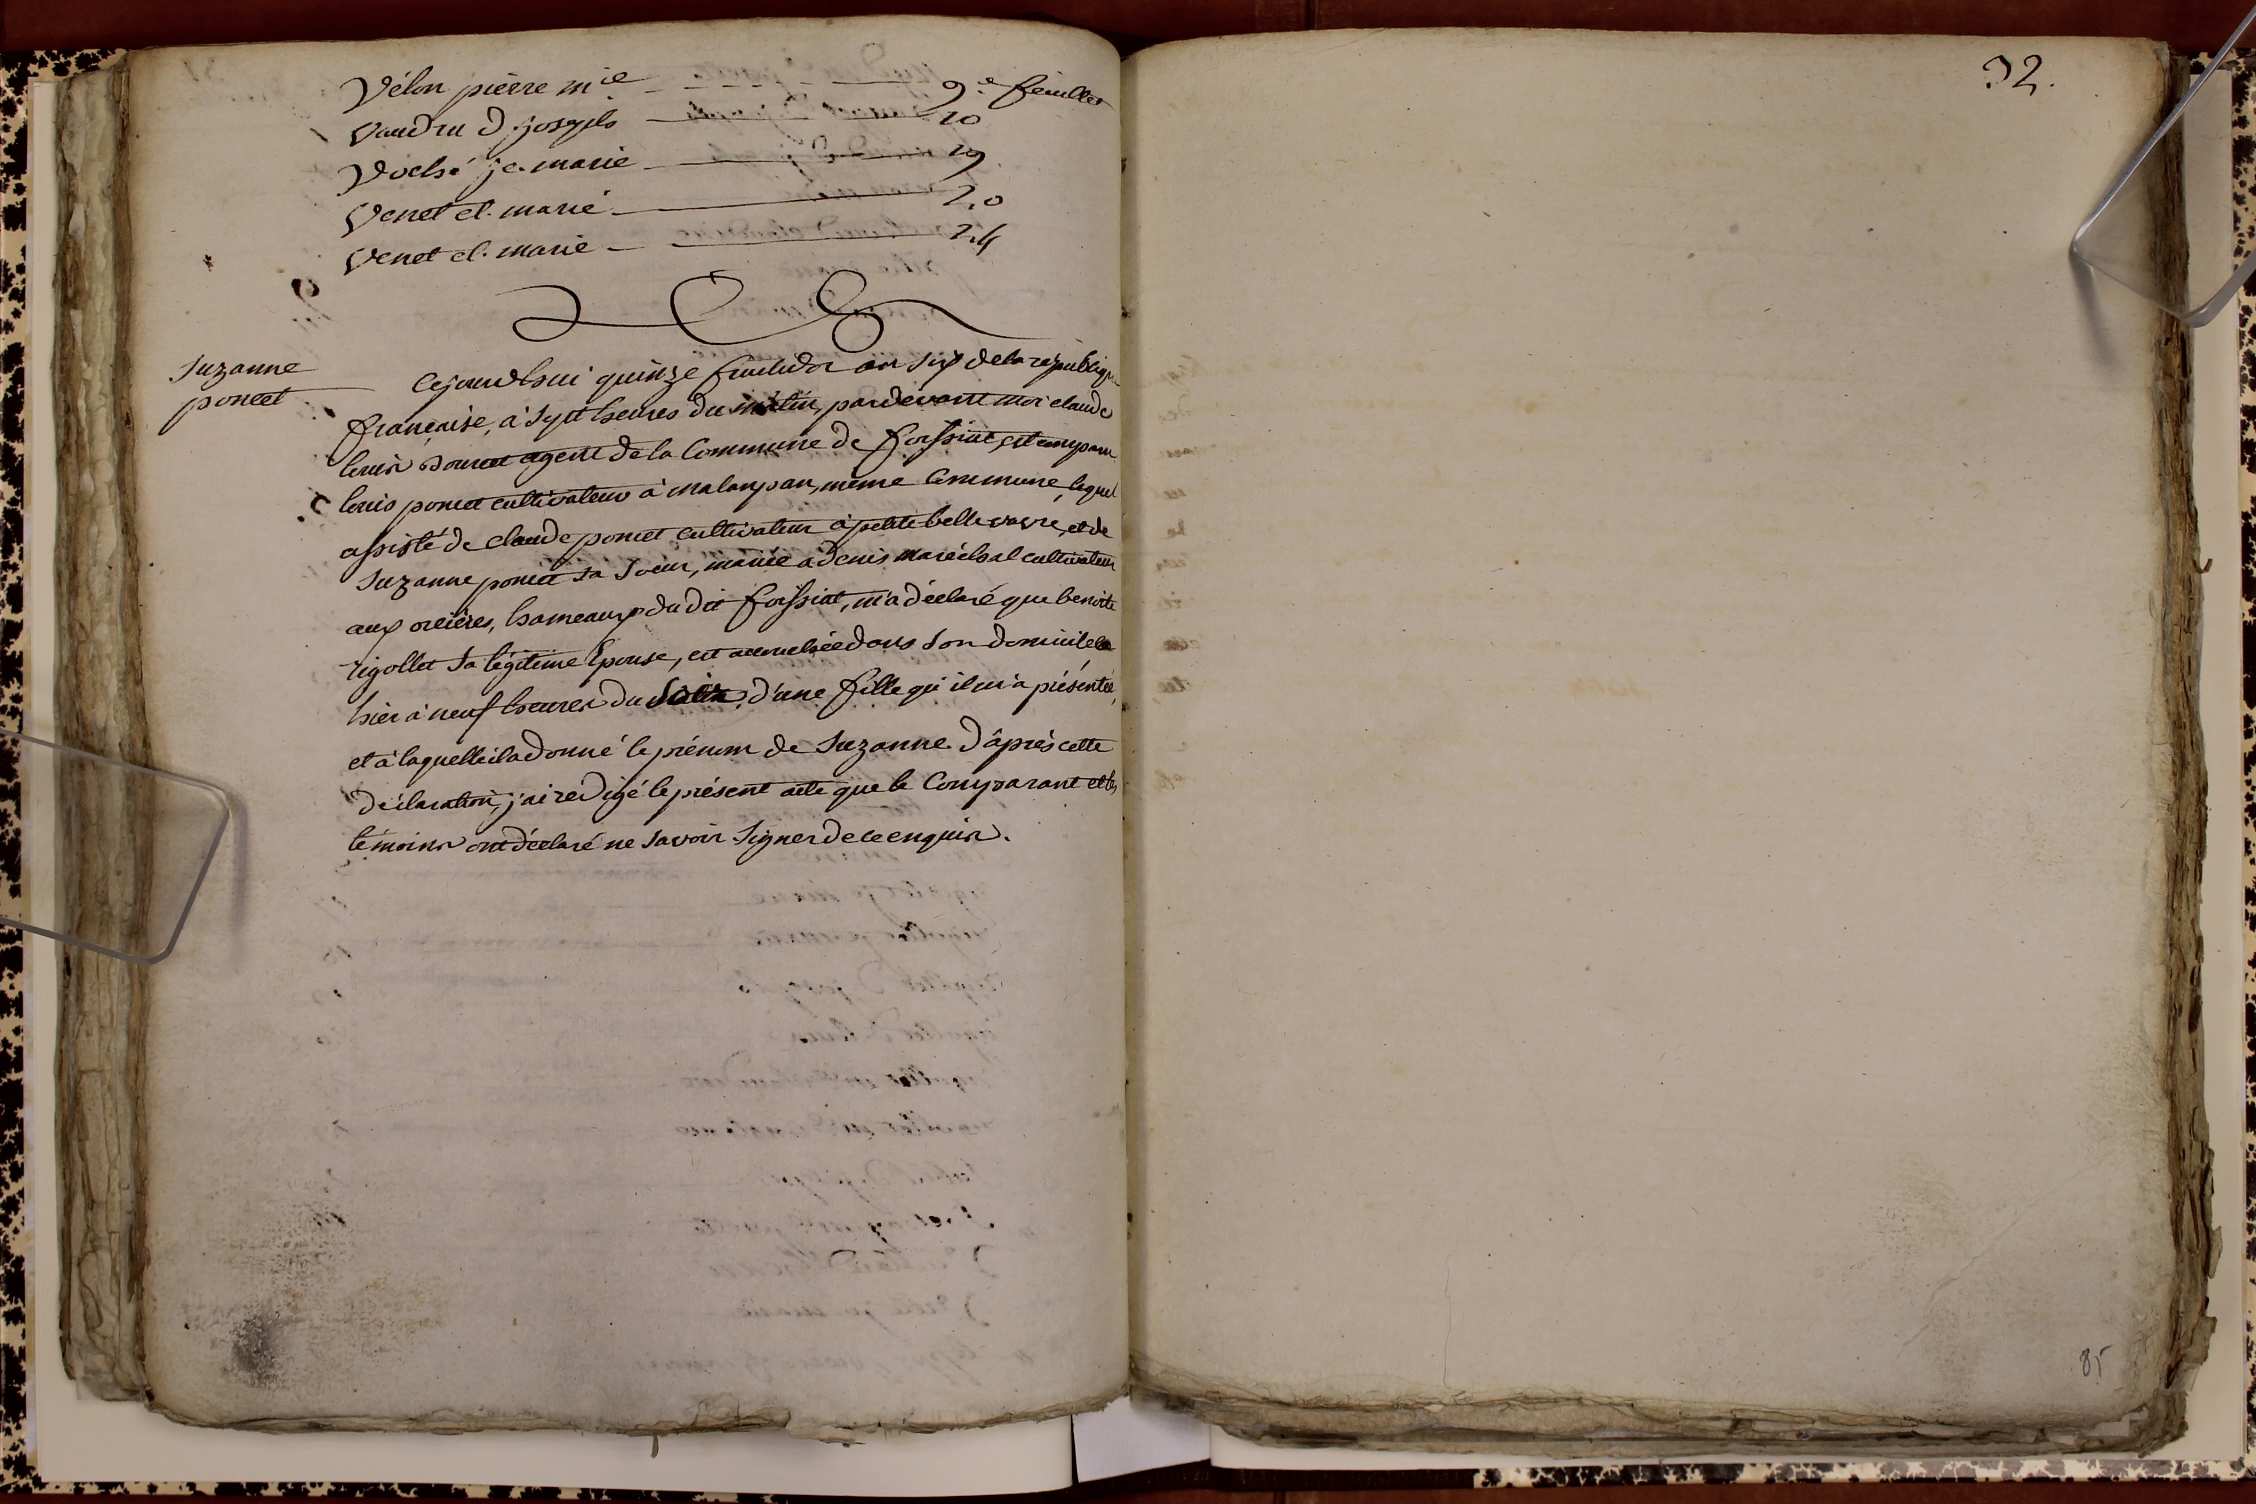 Vélon pierre mie 9.e feuillet
Vaudru d. joseph 10
Voché je. marie 19
Venet cl. marie 20
Venet cl. marie 24
Suzanne
poncet
Cejourdhui quinze fructidor an six de la république
française, à sept heures du matin, pardevant moi claude
louis agent de la Commune de foissiat, est comparu
louis poncet cultivateur à malaupan, même Commune, lequel
assisté de claude poncet cultivateur à petite bellevavre, et de
Suzanne poncet sa soeur, mariée à denis maréchal cultivateur
aux orcières, hameaux du dit foissiat, m'a déclaré que benoite
rigollet sa légitime Epouse, est accouchée dans son domicile
hier à neuf heures du soir, d'une fille qu'il m'a présentée,
et à laquelle il a donné le prénom de Suzanne. D'âprés cette
déclaration, j'ai redigé le présent acte que le Comparant et les
témoins ont déclaré ne savoir signer de ce enquis.
32.
85